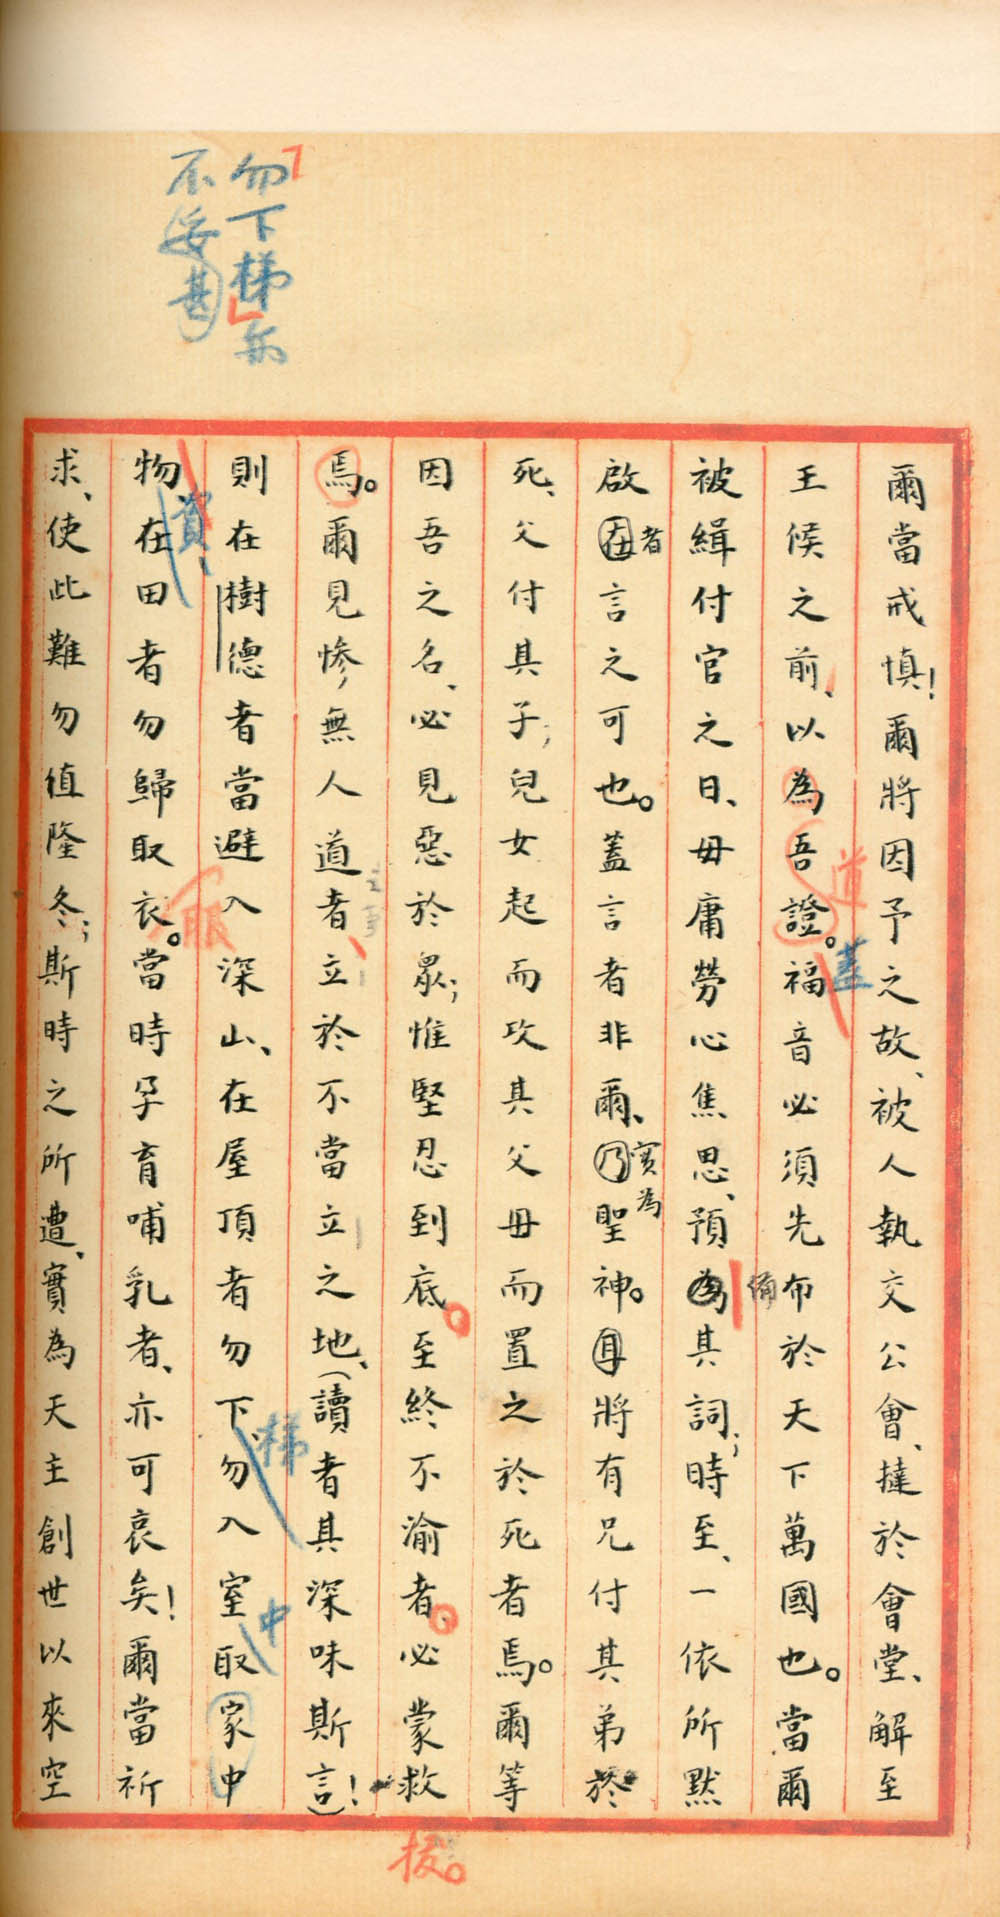 「勿下梯」亦
不妥甚
爾當戒慎!爾將因予之故、被人執交公會、撻於會堂、解至
王侯之前、以為吾證。福音必須先布於天下萬國也。當爾
道
蓋
被緝付官之日、毋庸勞心焦思、預為其詞;時至、一依所默
備
啟因言之可也。蓋言者非爾、乃聖神。且將有兄付其弟於
者
實為
死、父付其子;兒女起而攻其父母而置之於死者焉。爾等
因吾之名、必見惡於眾;惟堅忍到底。至終不渝者、必蒙救
拔。
焉。爾見慘無人道者立於不當立之地、(讀者其深味斯言!)
之事
則在樹德者當避入深山、在屋頂者勿下、勿入室取家中
梯
中
物在田者勿歸取衣。當時孕育哺乳者、亦可哀矣!爾當祈
資、
服
求、使此難勿值隆冬;斯時之所遭、實為天主創世以來空